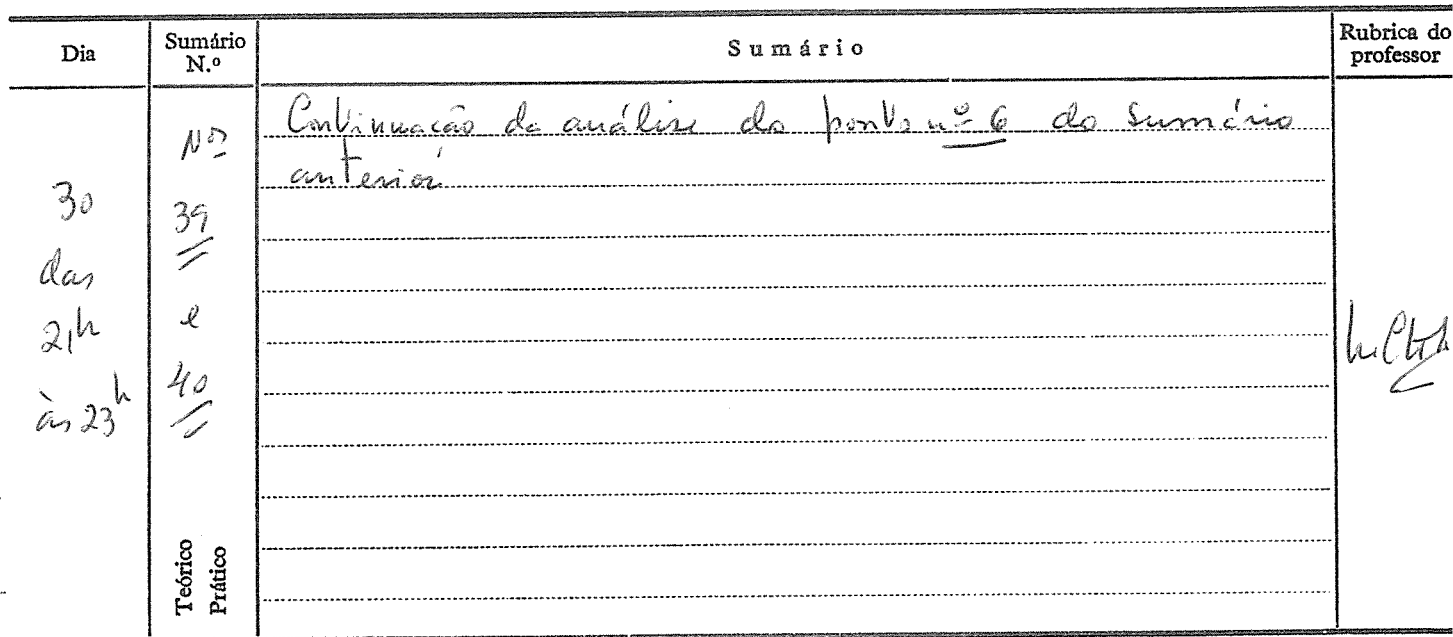 Dia
Sumário
N.º
Sumário
Rubrica do
professor
30
das
21h
às 23h
Nos
39
e
40
Teórico
Prático
Continuação da análise do ponto nº 6 do Sumário
anterior